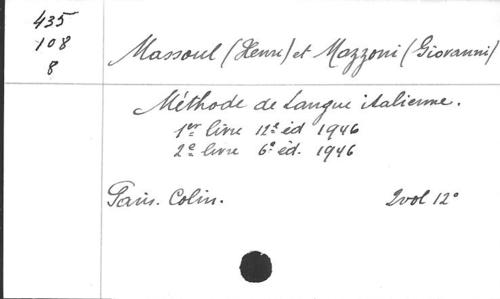 435
108
8
Massoul (Henri) et Mazzoni (Giovanni)
Méthode de langue italienne.
1er livre 12e éd 1946
2e livre 6e éd. 1946
Paris. Colin. 2vol 12°